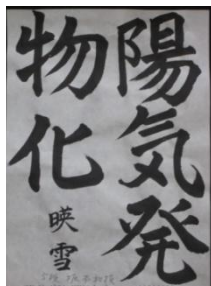 陽気発
物化
映雪